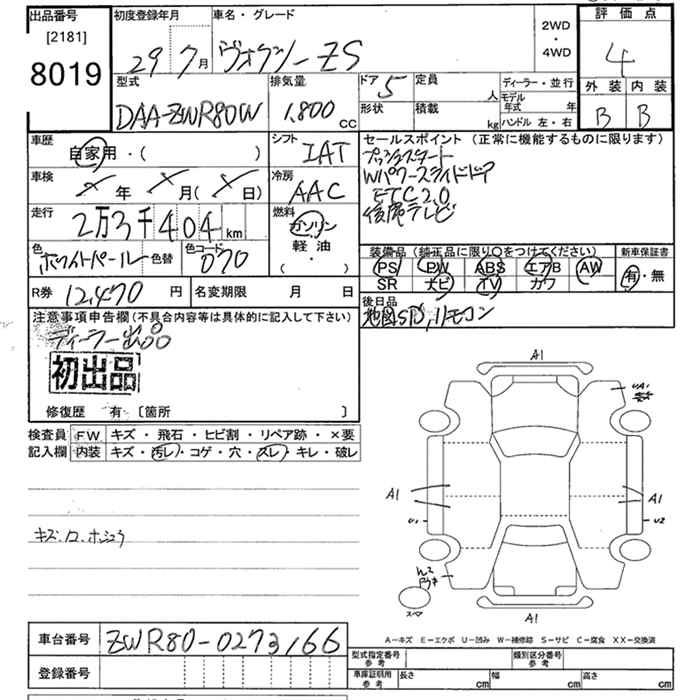 出品番号
[2181]
8019
初度登録年月
29 7月
車名・グレード
ヴォクシー ZS
2WD
・
4WD
評価点
4
外装 内装
B B
型式
DAA-ZWR80W
排気量
1,800 cc
ドア 5
定員 人
形状
積載 kg
ディーラー・並行
モデル年式 年
ハンドル 左・右
車歴
自家用・( )
シフト
IAT
車検
× 年 × 月( × 日)
冷房
AAC
走行
2万3千404 km
燃料
ガソリン
軽油
( ・ )
色
ホワイトパール
色替
色コード
070
R券 12,470 円
名変期限 月 日
セールスポイント (正常に機能するものに限ります)
プッシュスタート
Wパワースライドドア
ETC2.0
後席テレビ
装備品 (純正品に限り○をつけてください)
PS PW ABS エアB AW
SR ナビ TV カワ
新車保証書
有・無
後日品
地図SD,リモコン
注意事項申告欄(不具合内容等は具体的に記入して下さい)
ディーラー出品
初出品
修復歴 有 〔箇所 〕
検査員記入欄
FW キズ・飛石・ヒビ割・リペア跡・×要
内装 キズ・汚レ・コゲ・穴・スレ・キレ・破レ
キズ・ワ・ホシュウ
A1
UA1
A1
U1
A1
U2
A1
スペア
A−キズ E−エクボ U−凹み W−補修跡 S−サビ C−腐食 XX−交換済
車台番号
ZWR80-0273166
登録番号
型式指定番号
参考
類別区分番号
参考
車庫証明用
参考
長さ cm
幅 cm
高さ cm